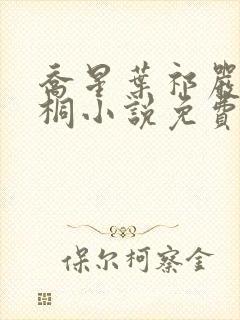 喬星葉祁嚴
桐小說免費
保尔柯察金